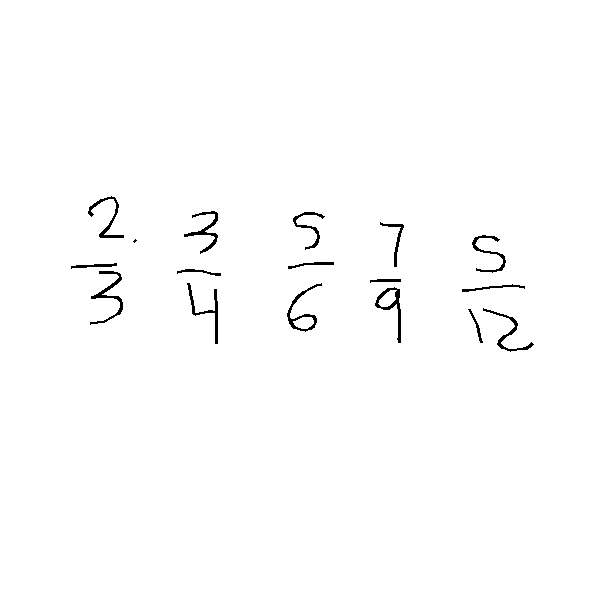 2/3 3/4 5/6 7/9 5/12